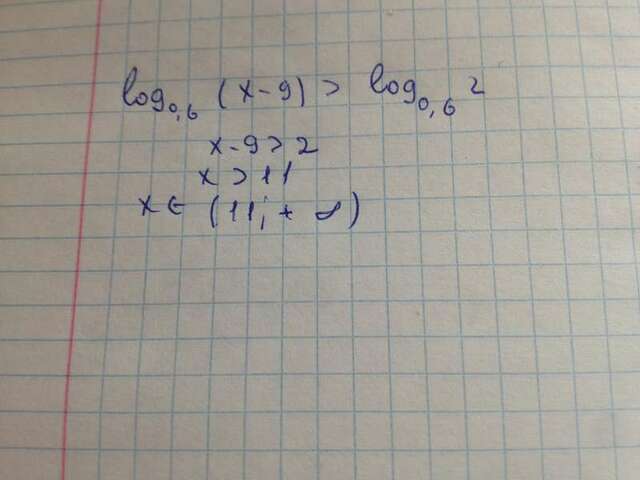 log₀,₆ (x-9) > log₀,₆ 2
x-9>2
x>11
x∈ (11; +∞)